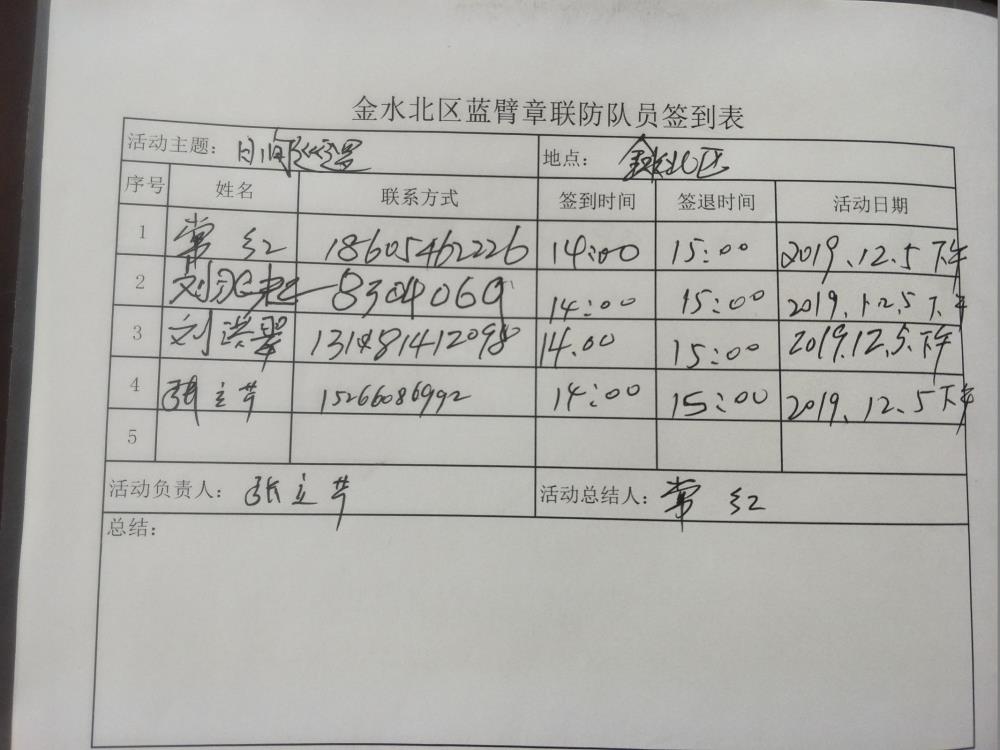 金水北区蓝臂章联防队员签到表
活动主题： 日间巡逻 地点： 金水北区
序号 姓名 联系方式 签到时间 签退时间 活动日期
1 常红 18605462226 14:00 15:00 2019.12.5下午
2 刘 8304069 14:00 15:00 2019.12.5下午
3 刘洪翠 14.00 15:00 2019.12.5.下午
4 张立芹 15266086992 14:00 15:00 2019.12.5下午
5
活动负责人： 张立芹 活动总结人： 常红
总结：